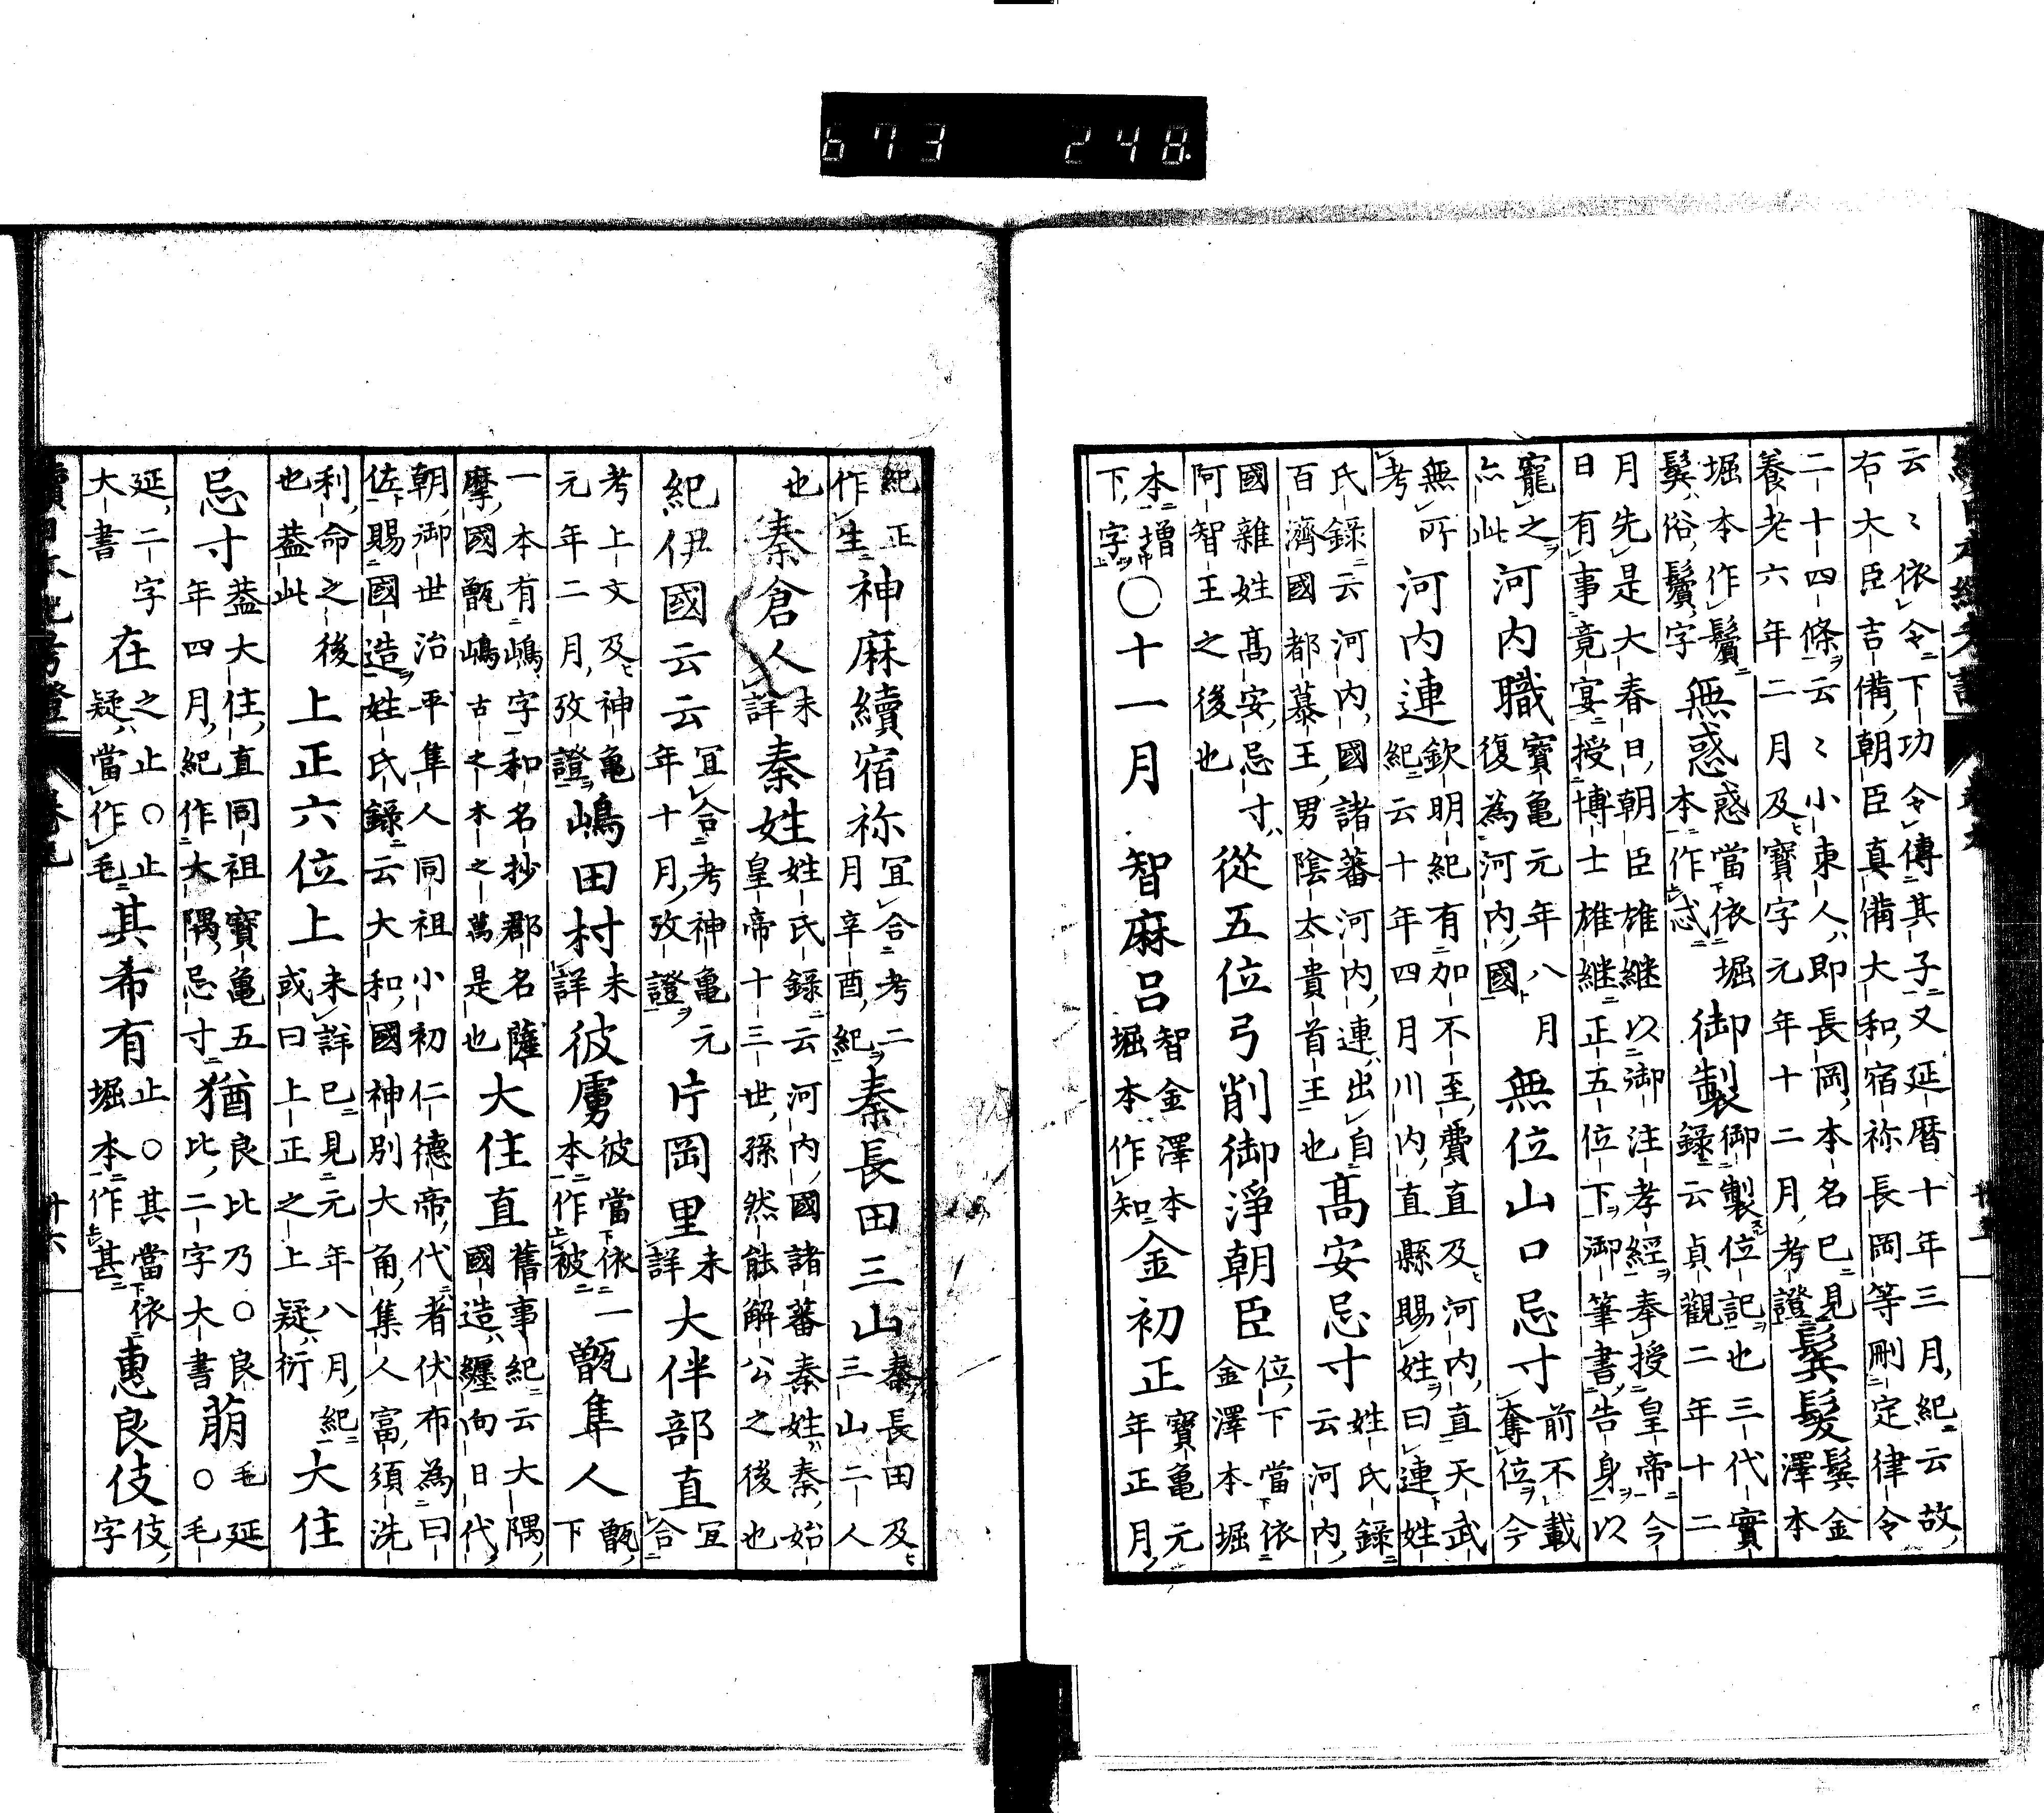 云〻依令下功令傳其子又延暦十年三月紀云故
右大臣吉備朝臣真備大和宿祢長岡等刪定律令
二十四條云〻小東人即長岡本名已見養老六年二月及寶字元年十二月考證鬂髮鬂金澤本
堀本作鬢鬂俗鬢字無惑惑當依堀本作忒御製御製位記也三代實錄云貞觀二年十二
月先是大春日朝臣雄継以御注孝經奉授皇帝今
日有事竟宴授博士雄継正五位下御筆書告身以
寵之亦此河内職寶亀元年八月復為河内國無位山口忌寸前不載奪位今
無所考河内連欽明紀有加不至費直及河内直天武紀云十年四月川内直縣賜姓曰連姓
氏錄云河内國諸蕃河内連出自百濟國都慕王男陰太貴首王也高安忌寸姓氏錄云河内
國雜姓高安忌寸阿智王之後也從五位弓削御淨朝臣位下當依金澤本堀
本増下字〇十一月智麻呂智金澤本堀本作知金初正寶亀元年正月
紀正作生神麻續宿祢宜合考二月辛酉紀秦長田三山秦長田及三山二人
也秦倉人未詳秦姓姓氏錄云河内國諸蕃秦姓秦始皇帝十三世孫然能解公之後也
紀伊國云云宜合考神亀元年十月攷證片岡里未詳大伴部直宜合
考上文及神亀元年二月攷證嶋田村未詳彼虜彼當依一本作被甑隼人甑下
一本有嶋字和名抄郡名薩摩國甑嶋古之木之萬是也大住直舊事紀云大隅國造纏向日代
朝御世治平隼人同祖小初仁德帝代者伏布為曰
佐賜國造姓氏錄云大和國神別大角集人富須洗
利命之後也葢此上正六位上未詳已見元年八月紀或曰上正之上疑衍大住
忌寸葢大住直同祖寶亀五年四月紀作大隅忌寸猶良比乃〇良比二字大書萠毛延〇毛
延二字大書在之止〇止疑當作毛其希有止〇其當依堀本作甚惠良伎伎字